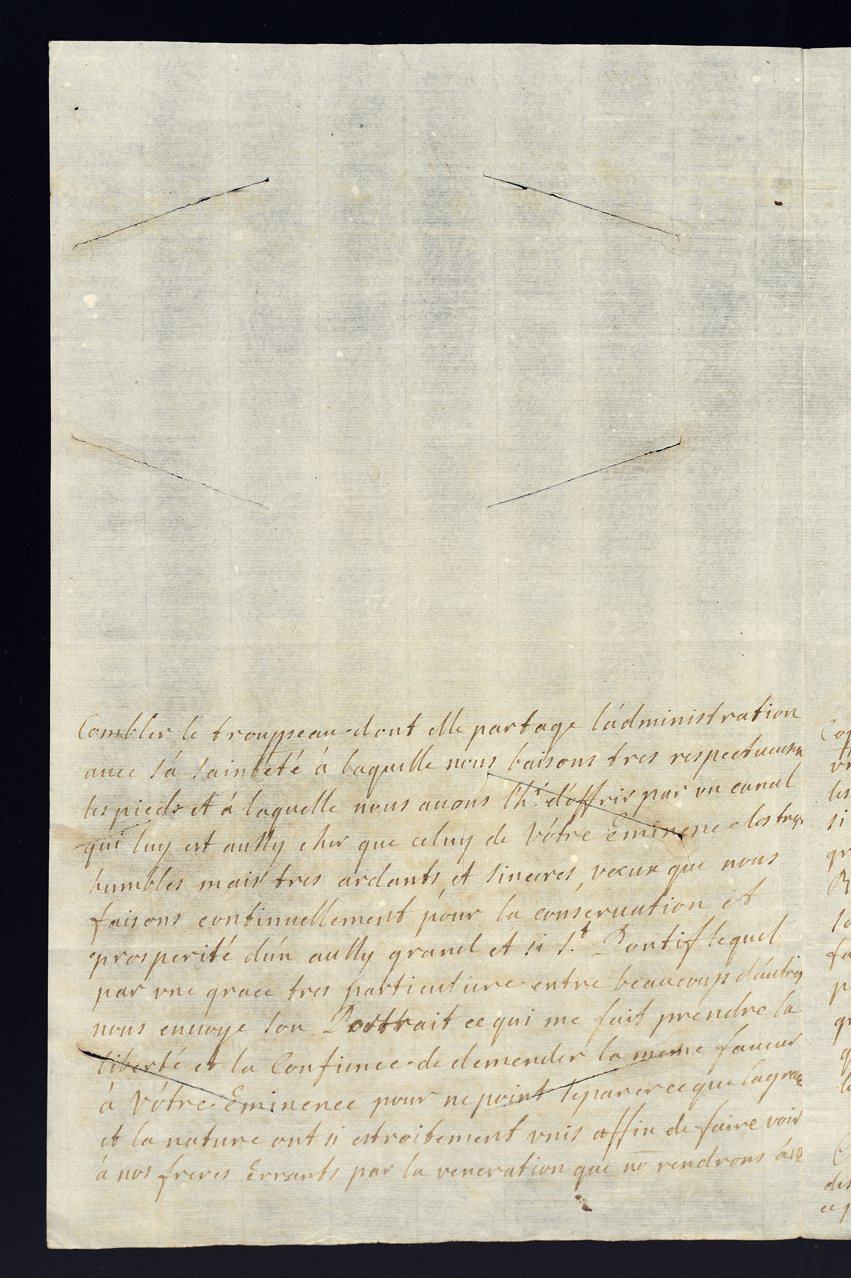 Combler le trouppeau dont elle partage l'administration
avec sa sainteté à laquelle nous baisons tres respectueusm
les pieds et à laquelle nous avons lh.r d'offrir par un canal
qui luy est aussy cher que celuy de Vôtre Eminence les
humbles mais tres ardants, et sinceres, vœux que nous
faisons continuellement pour la conservation et
prosperité d'un aussy grand et si S.t Pontif lequel
par une grace tres particuliere entre beaucoups d'autres
nous envoye son Portrait ce qui me fait prendre la
liberté et la Confience de demender la meme faveur
à Vôtre Eminence pour ne point separer ce que la grace
et la nature ont si estroitement unis affin de faire voir
à nos freres Errants par la veneration que no rendrons à